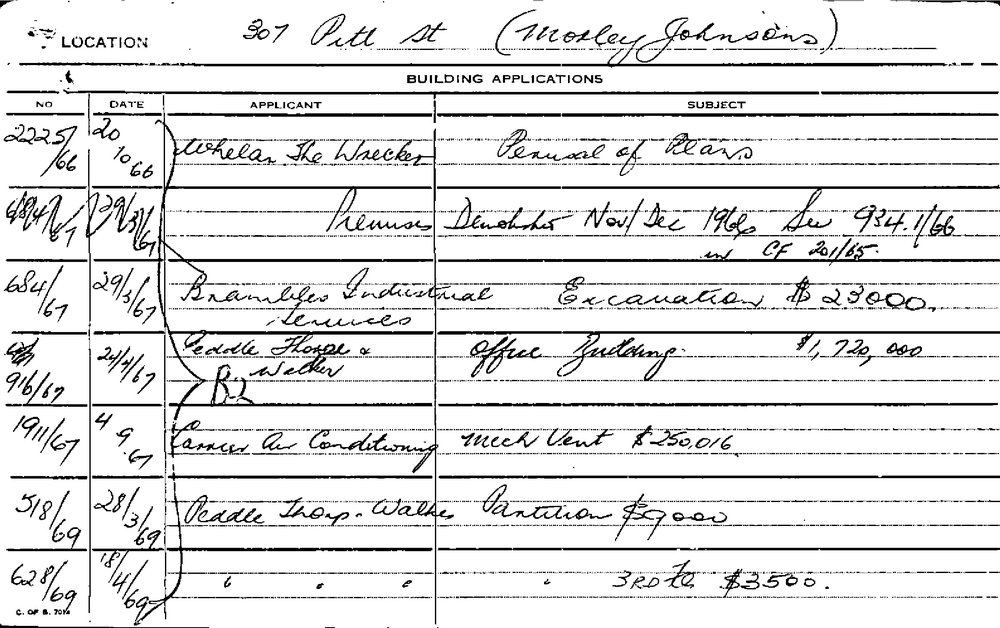 LOCATION 307 Pitt St (Morley Johnsons)
BUILDING APPLICATIONS
NO DATE APPLICANT SUBJECT
2225/66 20/10/66 Whelan The Wrecker Perusal of Plans
29/3/67 Premises Demolished Nov/Dec 1966 See 934.1/66
in CF 201/65.
684/67 29/3/67 Brambles Industrial Excavation $23000.
Services
Peddle Thorpe & Office Building. $1,720,000
916/67 24/4/67 Walker
B2
1911/67 4 9 67 Carrier Air Conditioning Mech Vent $250,016.
518/69 28/3/69 Peddle Thorp. Walker Partition $9000
628/69 18/4/69 " " " " 3RD FL $3500.
C. OF S. 7014